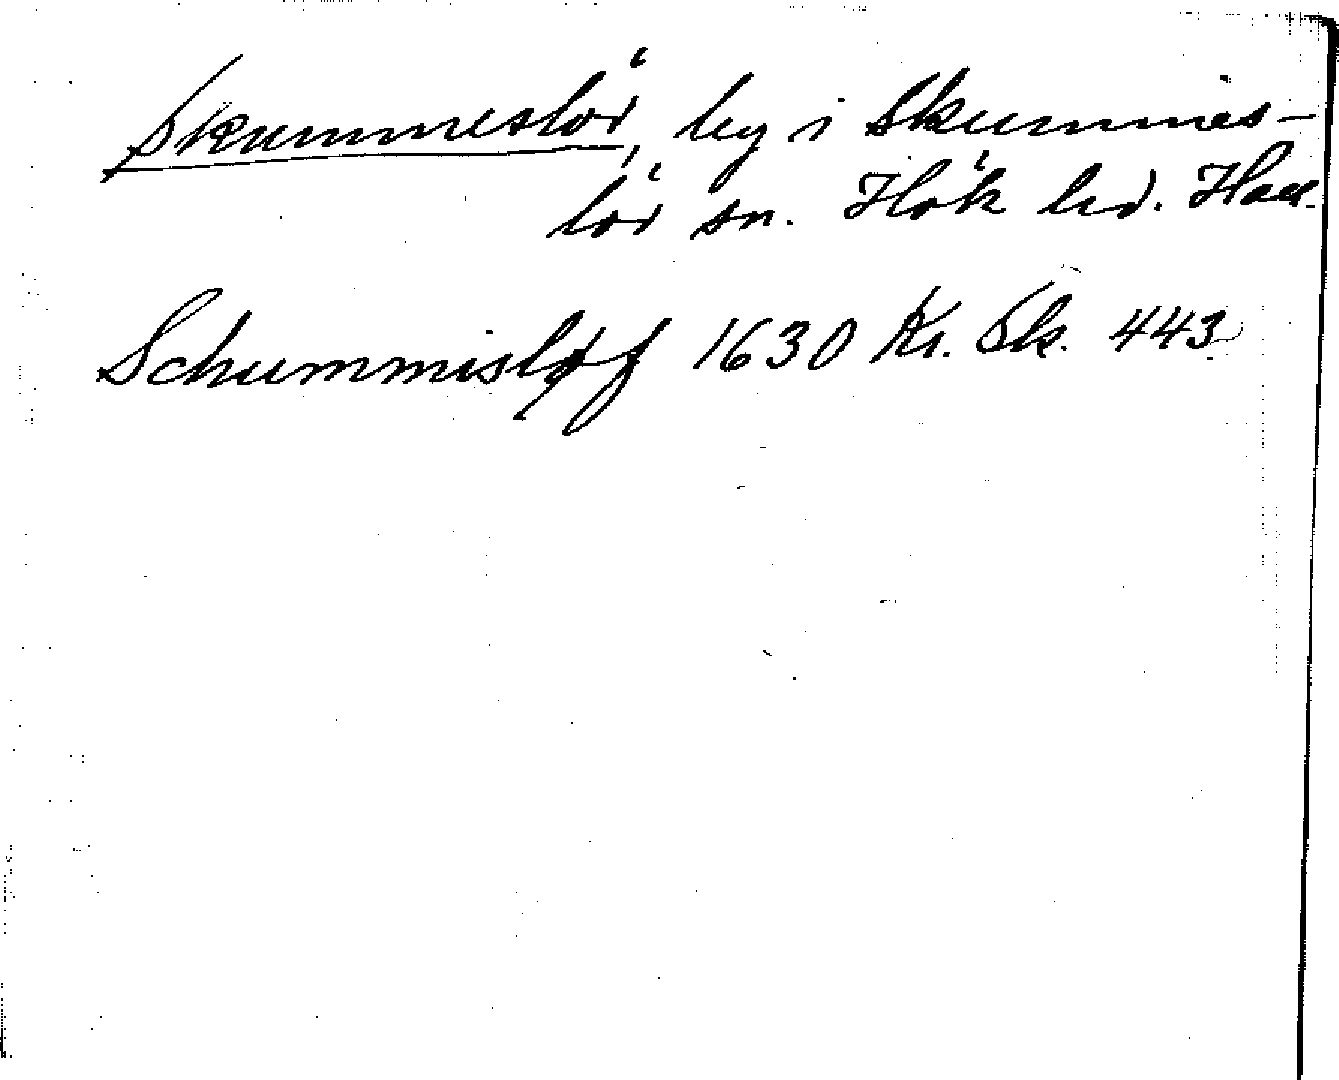 Skummeslöv, by i Skummes-
löv sn. Hök hd. Hall.
Schummisløf 1630 Kr. Sk. 443